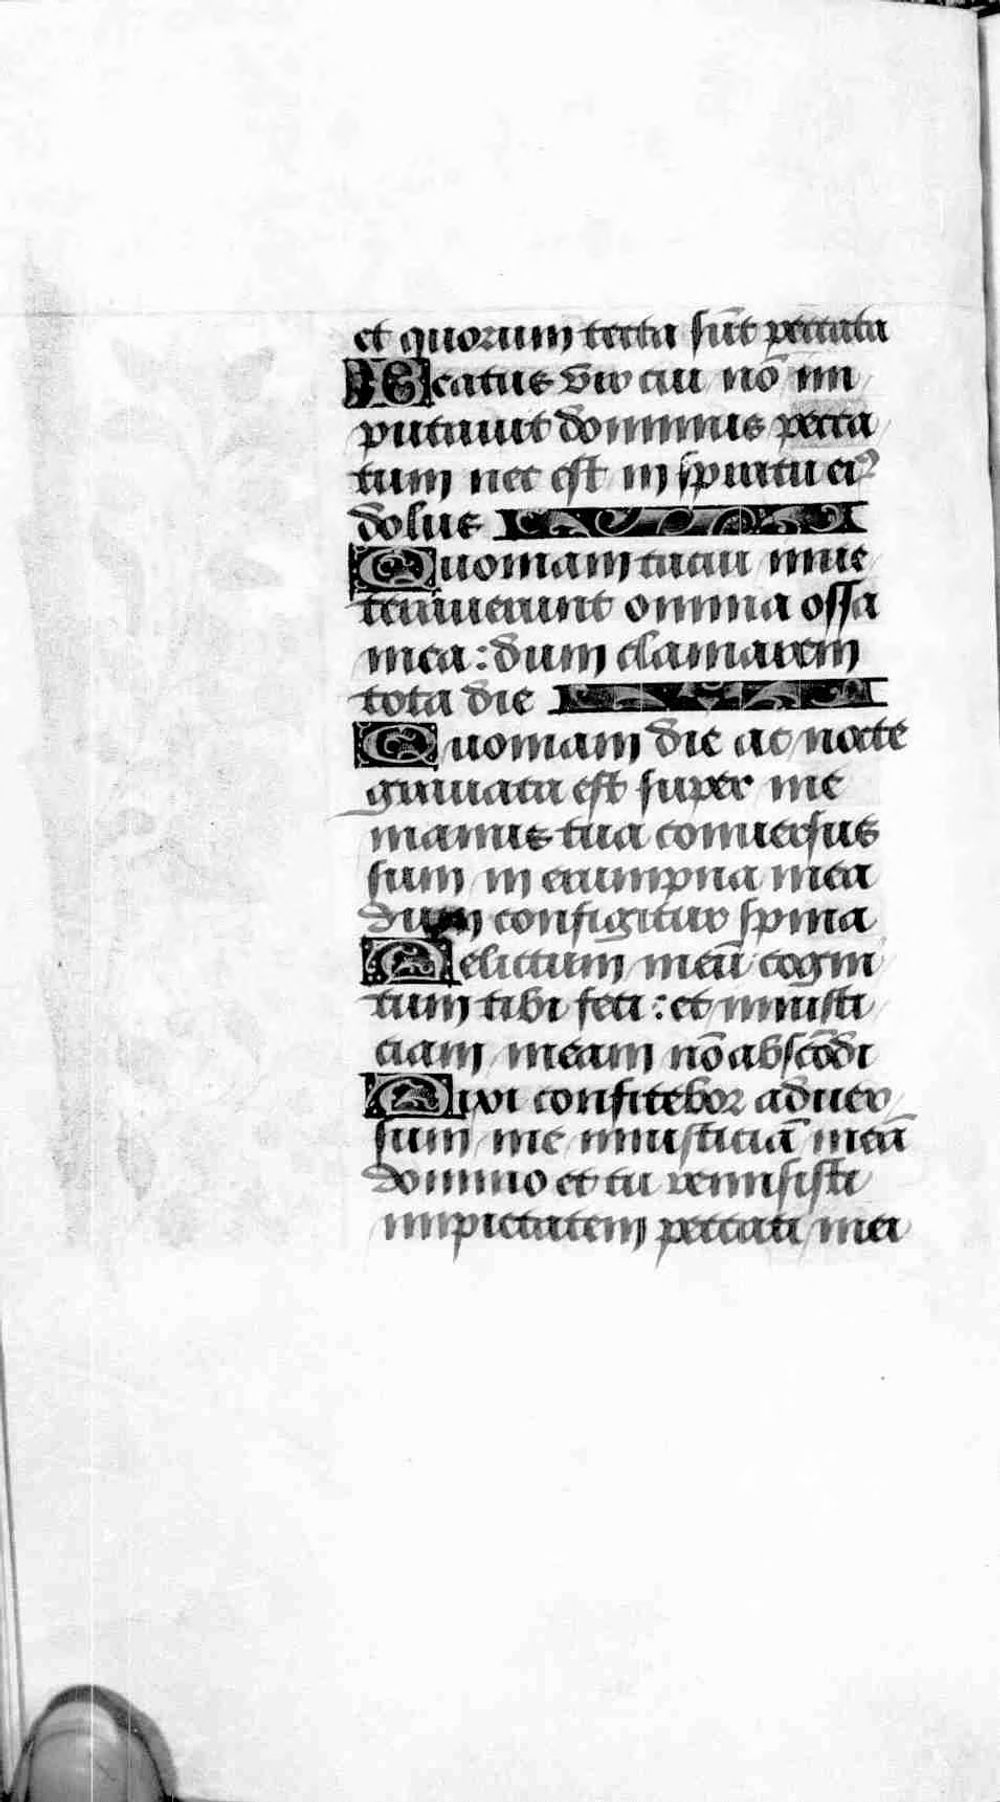 et quorum tecta sūt peccata
Beatus vir cui nō im
putauit dominus pecca
tum nec est in spiritu eiꝰ
dolus
Quoniam tacui inue
terauerunt omnia ossa
mea : dum clamarem
tota die
Quoniam die ac nocte
grauata est super me
manus tua conuersus
sum in erumpna mea
dum configitur spina
Delictum meū cogni
tum tibi feci : et iniusti
ciam meam nō abscōdi
Dixi confitebor aduer
sum me iniusticiā meā
domino et tu remisisti
impietatem peccati mei